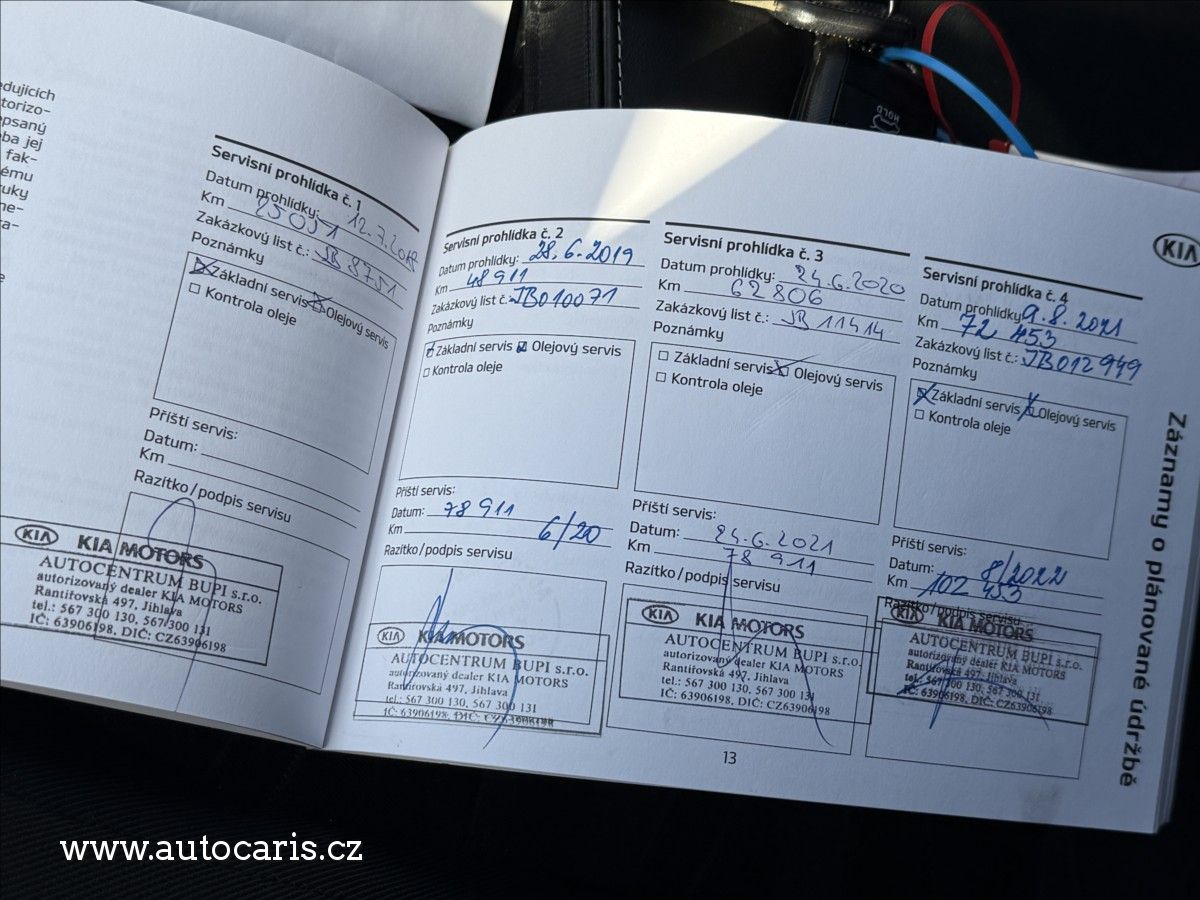 dujících
torizo-
epsaný
ba jej
fak-
ému
uky
ne-
ka-
e
HOLD
Servisní prohlídka č. 1
Datum prohlídky: 12.7.2018
Km 25051
Zakázkový list č.: JB 8751
Poznámky
Základní servis Olejový servis
Kontrola oleje
Příští servis:
Datum:
Km
Razítko/podpis servisu
KIA KIA MOTORS
AUTOCENTRUM BUPI s.r.o.
autorizovaný dealer KIA MOTORS
Rantířovská 497, Jihlava
tel.: 567 300 130, 567 300 131
IČ: 63906198, DIČ: CZ63906198
Servisní prohlídka č. 2
Datum prohlídky: 28.6.2019
Km 48911
Zakázkový list č.: JB010071
Poznámky
Základní servis Olejový servis
Kontrola oleje
Příští servis:
Datum: 78 911
Km 6/20
Razítko/podpis servisu
KIA KIA MOTORS
AUTOCENTRUM BUPI s.r.o.
autorizovaný dealer KIA MOTORS
Rantířovská 497, Jihlava
tel.: 567 300 130, 567 300 131
IČ: 63906198, DIČ: CZ63906198
Servisní prohlídka č. 3
Datum prohlídky: 24.6.2020
Km 62806
Zakázkový list č.: JB 11414
Poznámky
Základní servis Olejový servis
Kontrola oleje
Příští servis:
Datum: 24.6.2021
Km 78 911
Razítko/podpis servisu
KIA KIA MOTORS
AUTOCENTRUM BUPI s.r.o.
autorizovaný dealer KIA MOTORS
Rantířovská 497, Jihlava
tel.: 567 300 130, 567 300 131
IČ: 63906198, DIČ: CZ63906198
KIA
Servisní prohlídka č. 4
Datum prohlídky: 9.8.2021
Km 72 453
Zakázkový list č.: JB012949
Poznámky
Základní servis Olejový servis
Kontrola oleje
Příští servis:
Datum: 8/2022
Km 102 453
Razítko/podpis servisu
KIA KIA MOTORS
AUTOCENTRUM BUPI s.r.o.
autorizovaný dealer KIA MOTORS
Rantířovská 497, Jihlava
tel.: 567 300 130, 567 300 131
IČ: 63906198, DIČ: CZ63906198
Záznamy o plánované údržbě
13
www.autocaris.cz